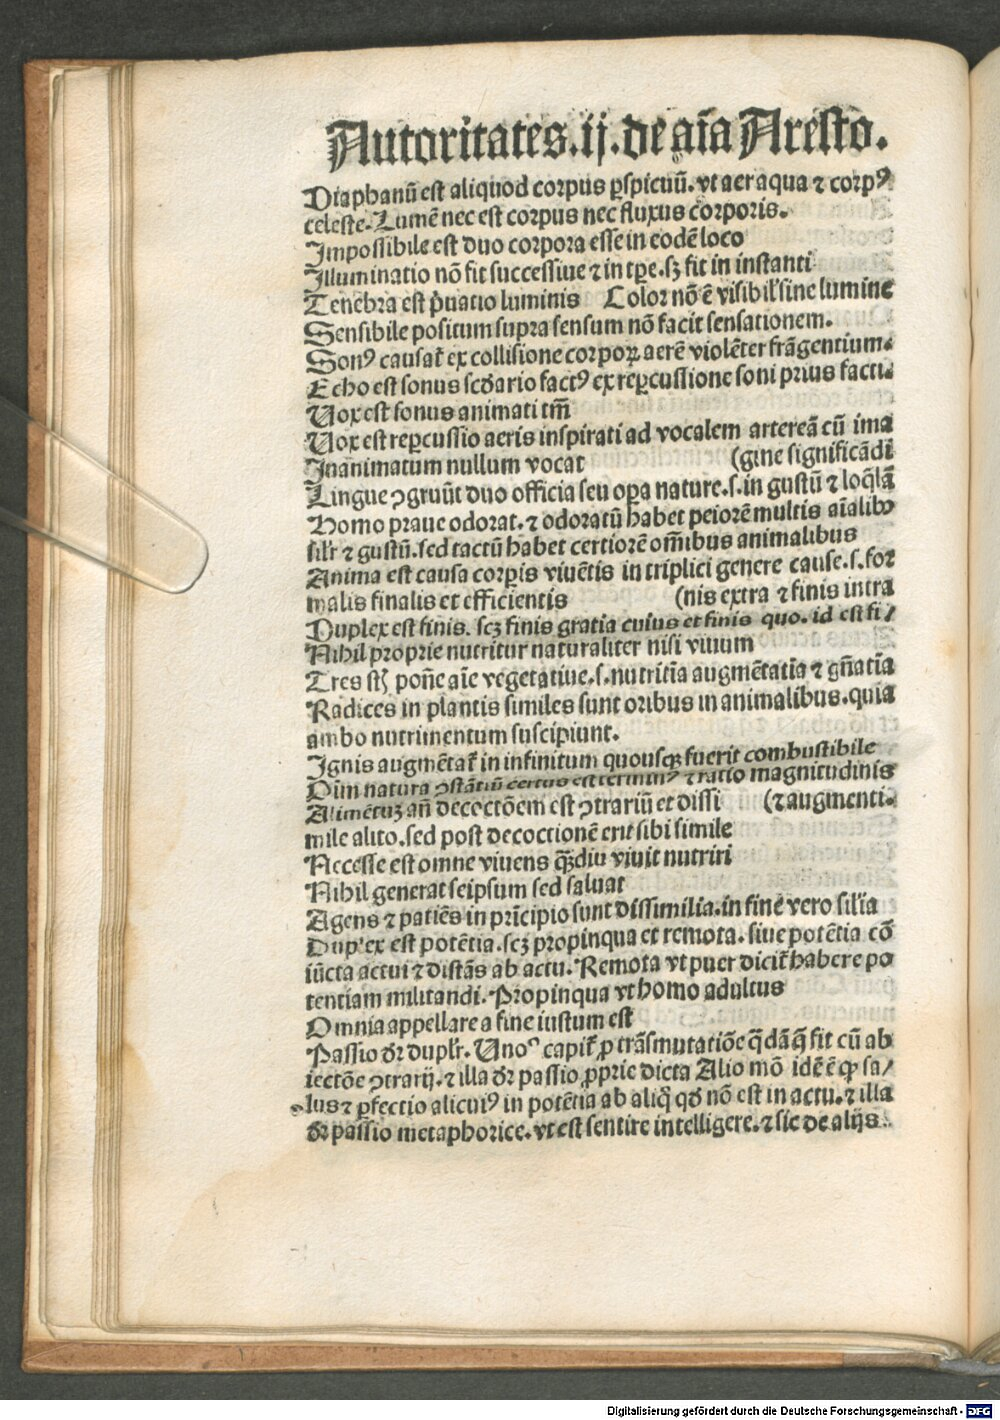 Autoritates.ij.de aīa Aresto.
Diaphanū est aliquod corpus ꝑspicuū. vt aer aqua ⁊ corpꝰ
celeste. Lumē nec est corpus nec fluxus corporis.
Impossibile est duo corpora esse in eodē loco
Illuminatio nō fit successiue ⁊ in tꝑe. sꝫ fit in instanti
Tenebra est p̄uatio luminis Color nō ē visibil' sine lumine
Sensibile positum supra sensum nō facit sensationem.
Sonꝰ causat̄ ex collisione corpoꝝ aerē violēter frāgentium.
Echo est sonus scd̄ario factꝰ ex reꝑcussione soni prius factu
Uox est sonus animati tm̄
Uox est reꝑcussio aeris inspirati ad vocalem artereā cū ima
Inanimatum nullum vocat (gine significādi
Lingue ꝯgruūt duo officia seu oꝑa nature. s. in gustū ⁊ loq̄lā
Homo praue odorat. ⁊ odoratū habet peiorē multis aīalibꝰ
silr̄ ⁊ gustū. sed tactū habet certiorē om̄ibus animalibus
Anima est causa corꝑis viuētis in triplici genere cause. s. for
malis finalis et efficientis (nis extra ⁊ finis intra
Duplex est finis. scꝫ finis gratia cuius et finis quo. id est fi/
Nihil proprie nutritur naturaliter nisi viuum
Tres st̄ poñe aīe vegetatiue. s. nutritīa augmētatīa ⁊ gñatīa
Radices in plantis similes sunt oribus in animalibus. quia
ambo nutrimentum suscipiunt.
Ignis augmētat̄ in infinitum quousqꝫ fuerit combustibile
Oīm natura ꝯstātiū certus est terminꝰ ⁊ ratio magnitudinis
Alimētuꝫ añ decoctōem est ꝯtrariū et dissi (⁊ augmenti.
mile alito. sed post decoctionē erit sibi simile
Necesse est omne viuens qꝫdiu viuit nutriri
Nihil generat seipsum sed saluat
Agens ⁊ patiēs in prīcipio sunt dissimilia. in fine vero sil'ia
Dupl'ex est potētia. scꝫ propinqua et remota. siue potētia cō
iūcta actui ⁊ distās ab actu. Remota vt puer dicit̄ habere po
tentiam militandi. Propinqua vt homo adultus
Omnia appellare a fine iustum est
Passio dr̄ duplr̄. Unoº capit̄ ꝓ trāsmutatiōe q̄dā q̄ fit cū ab
iectōe ꝯtrarij. ⁊ illa dr̄ passio ꝓprie dicta Alio mō idē ē qꝙ sa/
lus ⁊ ꝑfectio alicuiꝰ in potētia ab aliq̊ qd̄ nō est in actu. ⁊ illa
dr̄ passio metaphorice. vt est sentire intelligere. ⁊ sic de alijs.
Digitalisierung gefördert durch die Deutsche Forschungsgemeinschaft - DFG